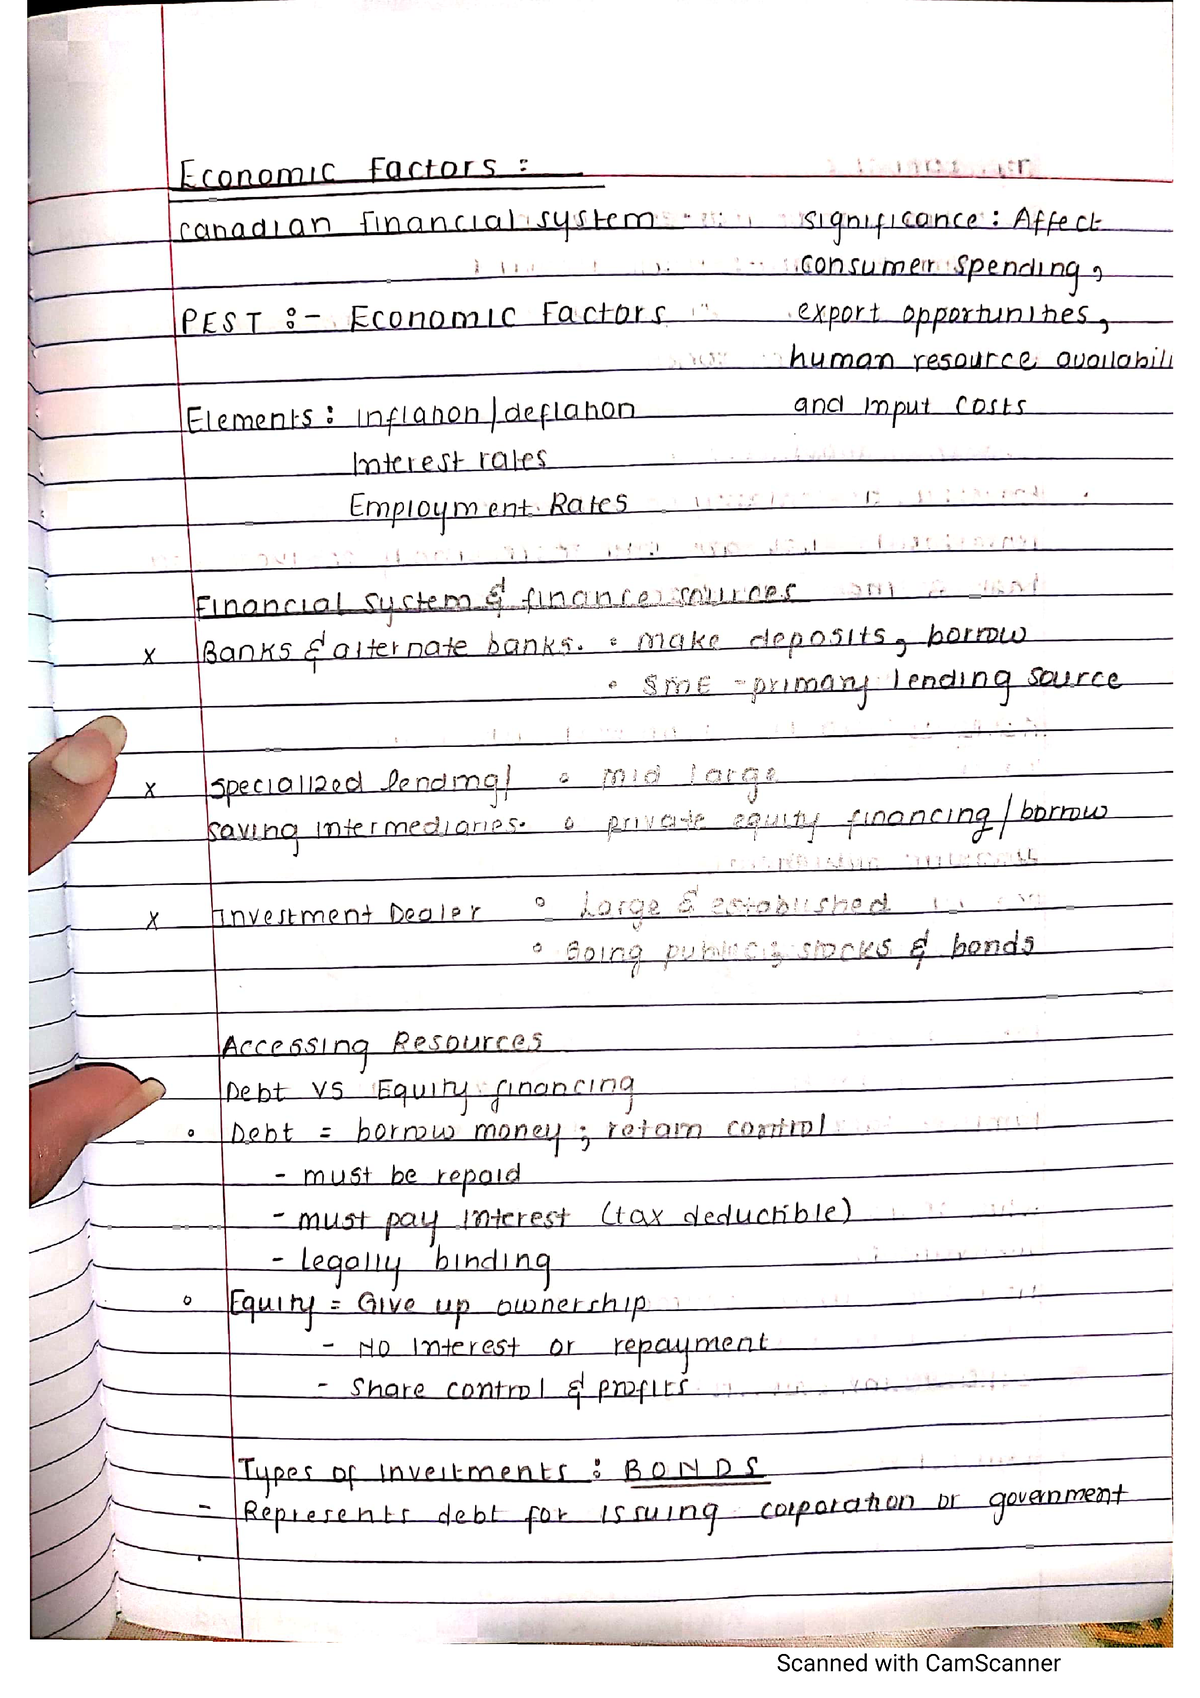 Economic Factors :
Canadian financial system
Significance : Affect
consumer spending,
PEST :- Economic Factors
export opportunities,
human resource availabili
Elements : Inflation/deflation
and input costs
Interest rates
Employment Rates
Financial system & finance sources
x Banks & alternate banks. • make deposits, borrow
• SME - primary lending source
x Specialized lending/ • mid large
saving intermediaries. • private equity financing/borrow
x Investment Dealer • Large & established
• Going public; stocks & bonds
Accessing Resources
Debt VS Equity financing
• Debt = borrow money ; retain control
- must be repaid
- must pay interest (tax deductible)
- Legally binding
• Equity = Give up ownership
- NO interest or repayment
- Share control & profits
Types of investments : BONDS
- Represents debt for issuing corporation or government
Scanned with CamScanner